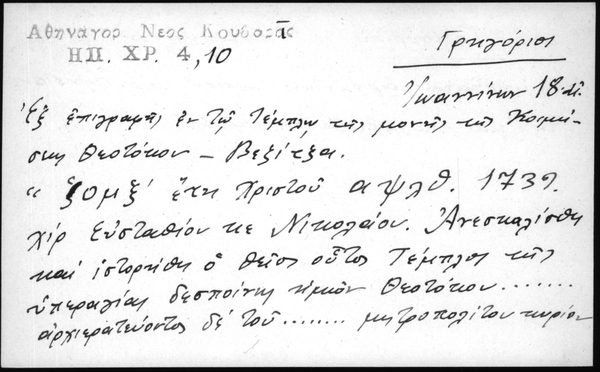 Αθηναγορ Νεος Κουβαρᾶς
ΗΠ. ΧΡ. 4, 10
Γρηγόριοι
Ἰωαννίνων 18 αἰ.
Ἐξ ἐπιγραφῆς ἐν τῷ Τέμπλῳ τῆς μονῆς τῆς Κοιμή-
σεως Θεοτόκου – Βεζίτζα.
" ζομξ' ἔτη Χριστοῦ αψλθ. 1739.
χὶρ Εὐσταθίου κε Νικολάου. Ἀνεσκαλίσθη
καὶ ἱστορήθη ὁ θεῖος οὗτος Τέμπλος τῆς
ὑπεραγίας δεσποίνης ἡμῶν Θεοτόκου.......
ἀρχιερατεύοντος δέ τοῦ........ μητροπολίτου κυρίου